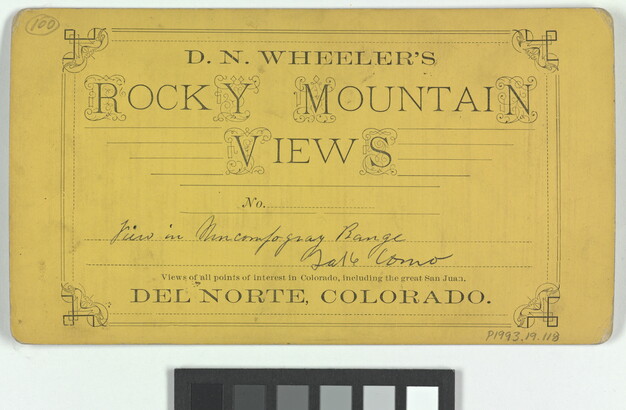 160
D. N. WHEELER'S
ROCKY MOUNTAIN
VIEWS
No.
View in Uncompogray Range
Lake Como
Views of all points of interest in Colorado, including the great San Juan.
DEL NORTE, COLORADO.
P1993.19.118